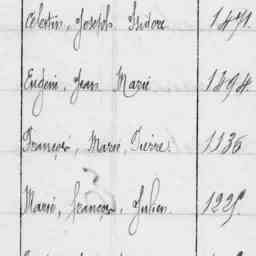 Célestin, Joseph Isidore 1471.
Eugène, Jean Marie 1294.
François, Marie, Pierre. 1136
Marie, François, Julien. 1229.